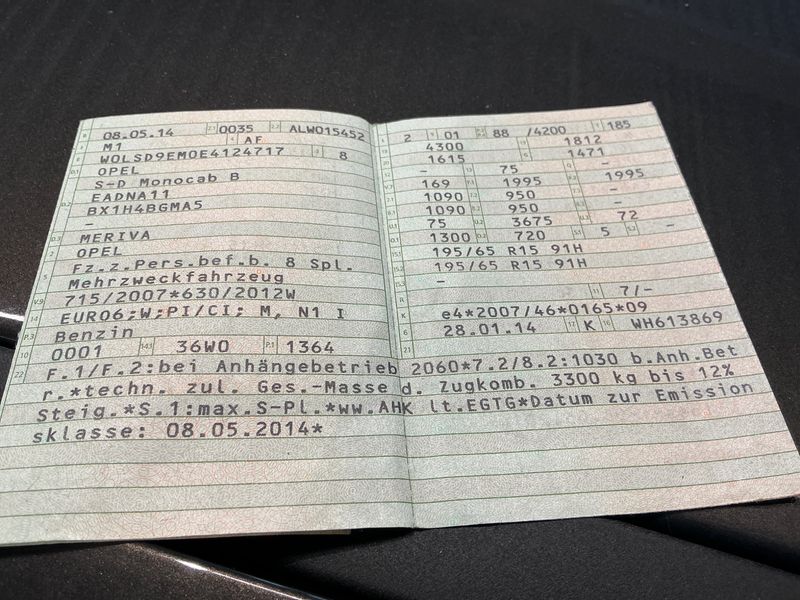 08.05.14 0035 ALW015452
M1 AF
W0LSD9EM0E4124717 8
OPEL
S-D Monocab B
EADNA11
BX1H4BGMA5
-
MERIVA
OPEL
Fz.z.Pers.bef.b. 8 Spl.
Mehrzweckfahrzeug
715/2007*630/2012W
EURO6;W;PI/CI; M, N1 I
Benzin
0001 36W0 1364
2 01 88 /4200 185
4300 1812
1615 1471
- 75 -
169 1995 1995
1090 950 -
1090 950 -
75 3675 72
1300 720 5 -
195/65 R15 91H
195/65 R15 91H
- 7/-
e4*2007/46*0165*09
28.01.14 K WH613869
F.1/F.2:bei Anhängebetrieb 2060*7.2/8.2:1030 b.Anh.Bet
r.*techn. zul. Ges.-Masse d. Zugkomb. 3300 kg bis 12%
Steig.*S.1:max.S-Pl.*ww.AHK lt.EGTG*Datum zur Emission
sklasse: 08.05.2014*